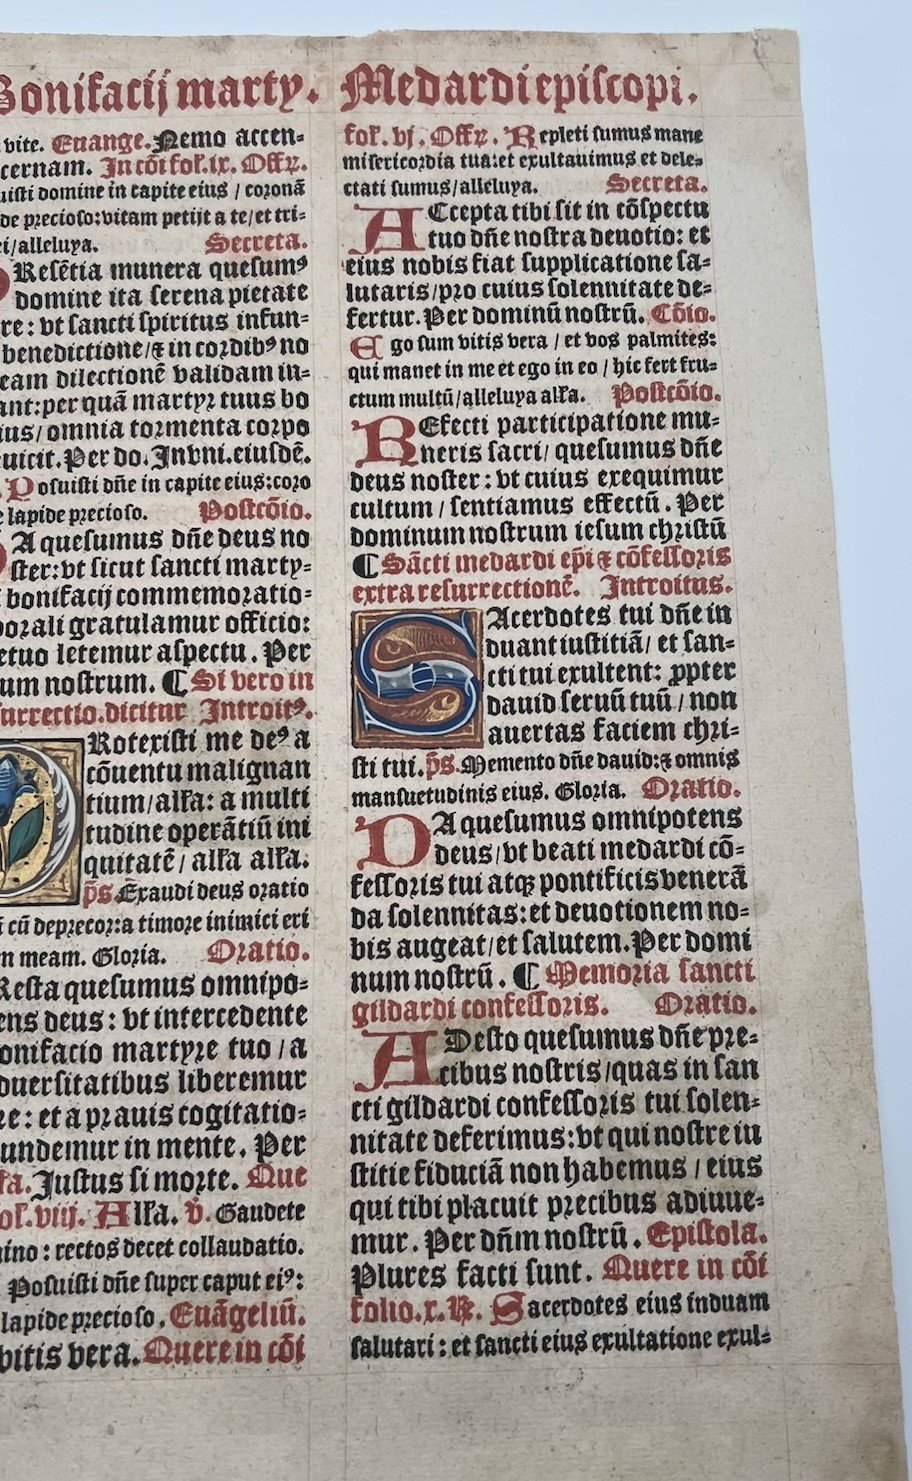 Bonifacij marty. Medardi episcopi.
vite. Euange. Nemo accen-
cernam. In cōi fol'. ix. Offꝝ.
uisti domine in capite eius / coronā
de precioso: vitam petijt a te / et tri-
ei / alleluya. Secreta.
Resētia munera quesumꝰ
domine ita serena pietate
re: vt sancti spiritus infun-
benedictione / ⁊ in cordibꝰ no
eam dilectionē validam in-
ant: per quā martyr tuus bo
ius / omnia tormenta corpo
uicit. Per do. In vni. eiusdē.
Posuisti dn̄e in capite eius: coro
e lapide precioso. Postcōio.
A quesumus dn̄e deus no
ster: vt sicut sancti marty-
bonifacij commemoratio-
porali gratulamur officio:
etuo letemur aspectu. Per
um nostrum. ¶ Si vero in
surrectio. dicitur Introitꝰ.
Rotexisti me deꝰ a
cōuentu malignan
tium / alł'a: a multi
tudine operātiū ini
quitatē / alł'a alł'a.
p̄s. Exaudi deus oratio
cū deprecor: a timore inimici eri
m meam. Gloria. Oratio.
Resta quesumus omnipo-
ens deus: vt intercedente
onifacio martyre tuo / a
duersitatibus liberemur
re: et a prauis cogitatio-
undemur in mente. Per
Justus si morte. Que
fol'. viij. Alł'a. v̄. Gaudete
mino: rectos decet collaudatio.
Posuisti dn̄e super caput eiꝰ:
lapide precioso. Euāgeliū.
vitis vera. Quere in cōi
fol'. vj. Offꝝ. Repleti sumus mane
misericordia tua: et exultauimus et dele-
ctati sumus / alleluya. Secreta.
ACcepta tibi sit in cōspectu
tuo dn̄e nostra deuotio: et
eius nobis fiat supplicatione sa-
lutaris / pro cuius solennitate de-
fertur. Per dominū nostrū. Cōio.
Ego sum vitis vera / et vos palmites:
qui manet in me et ego in eo / hic fert fru-
ctum multū / alleluya alł'a. Postcōio.
REfecti participatione mu-
neris sacri / quesumus dn̄e
deus noster: vt cuius exequimur
cultum / sentiamus effectū. Per
dominum nostrum iesum christū
¶ Sācti medardi ep̄i ⁊ cōfessoris
extra resurrectionē. Introitus.
SAcerdotes tui dn̄e in
duant iustitiā / et san-
cti tui exultent: ꝓpter
dauid seruū tuū / non
auertas faciem chri-
sti tui. p̄s. Memento dn̄e dauid: ⁊ omnis
mansuetudinis eius. Gloria. Oratio.
DA quesumus omnipotens
deus / vt beati medardi cō-
fessoris tui atqꝫ pontificis venerā
da solennitas: et deuotionem no-
bis augeat / et salutem. Per domi
num nostrū. ¶ Memoria sancti
gildardi confessoris. Oratio.
ADesto quesumus dn̄e pre-
cibus nostris / quas in san
cti gildardi confessoris tui solen-
nitate deferimus: vt qui nostre iu
stitie fiduciā non habemus / eius
qui tibi placuit precibus adiuue-
mur. Per dn̄m nostrū. Epistola.
Plures facti sunt. Quere in cōi
folio. x. ℟. Sacerdotes eius induam
salutari: et sancti eius exultatione exul-